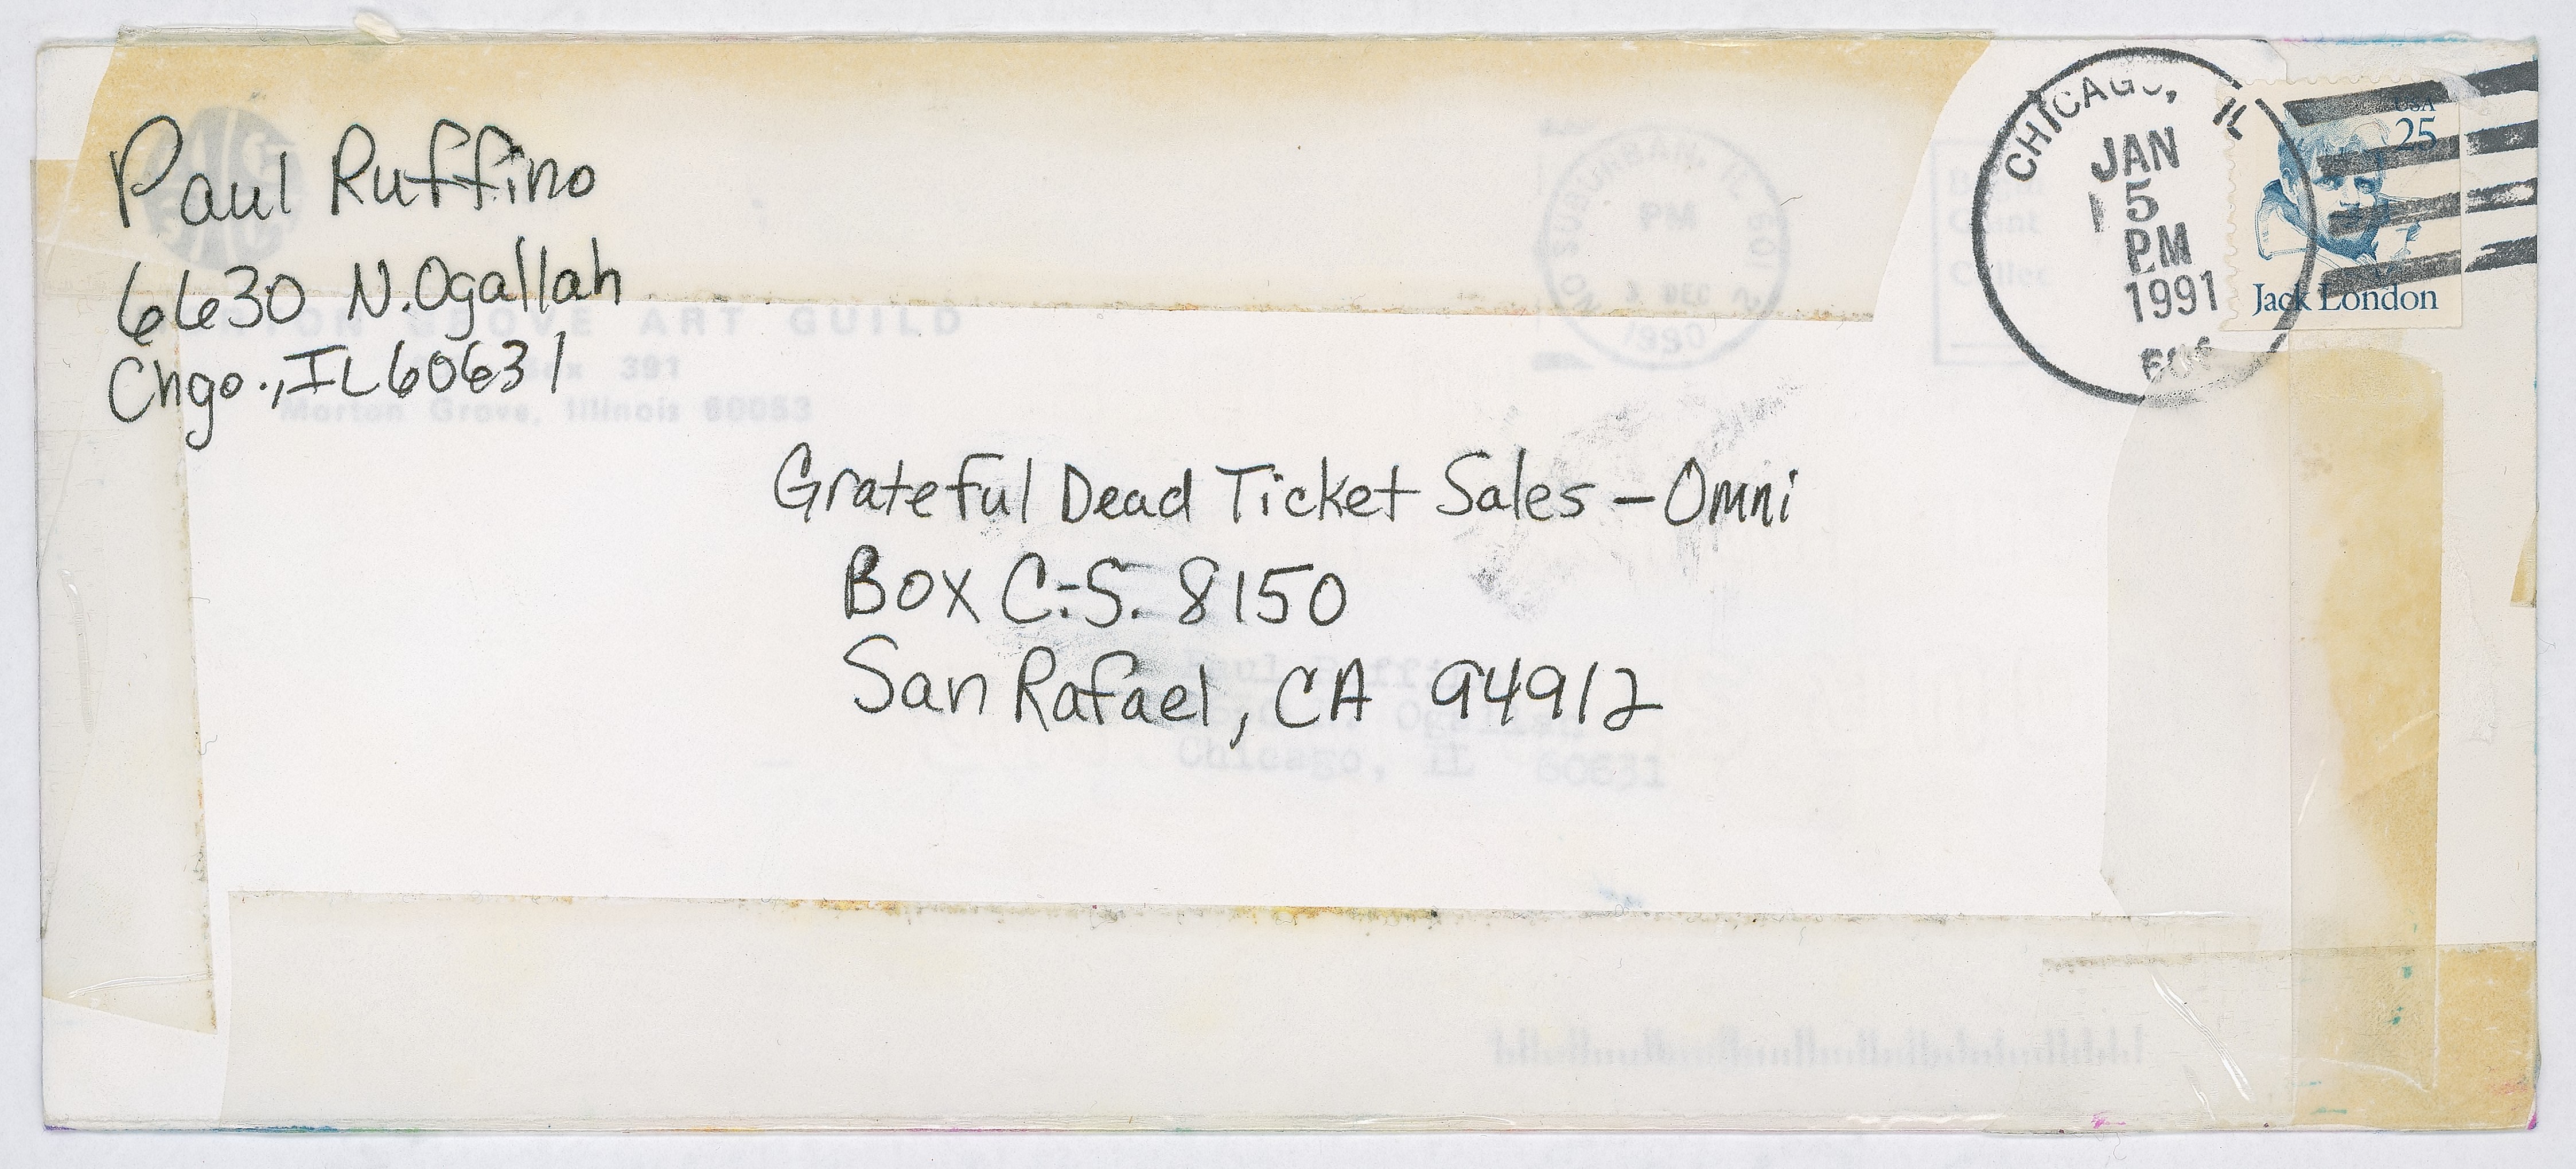 Paul Ruffino
6630 N. Ogallah
Chgo., IL 60631
CHICAGO, IL
JAN
5
PM
1991
USA
25
Jack London
Grateful Dead Ticket Sales - Omni
Box C.S. 8150
San Rafael, CA 94912
SUBURBAN, IL
PM
DEC
1990
GROVE ART GUILD
391
Morton Grove, Illinois 60053
Paul
Chicago, IL 60631